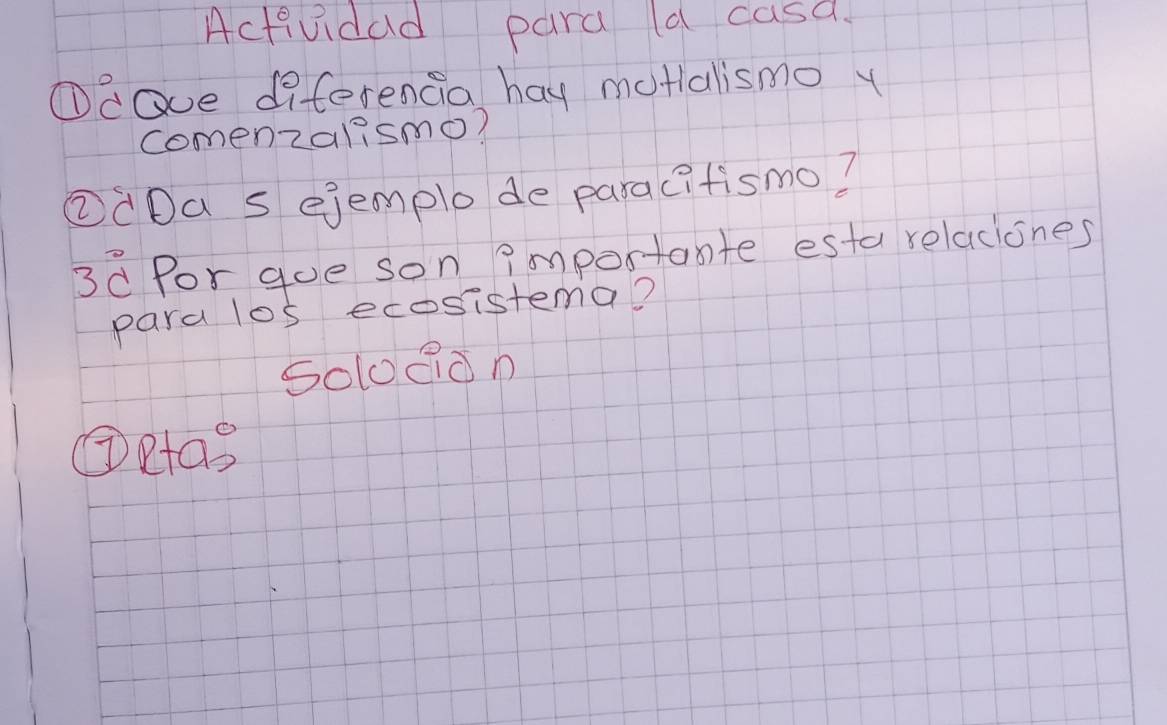 Actividad para la casa.
① ¿Que diferencia hay motialismo y
comenzalismo?
② ¿Da 5 ejemplo de paracitismo?
3 ¿Por que son importante esta relaciones
para los ecosistema?
Solocion
① Rta: